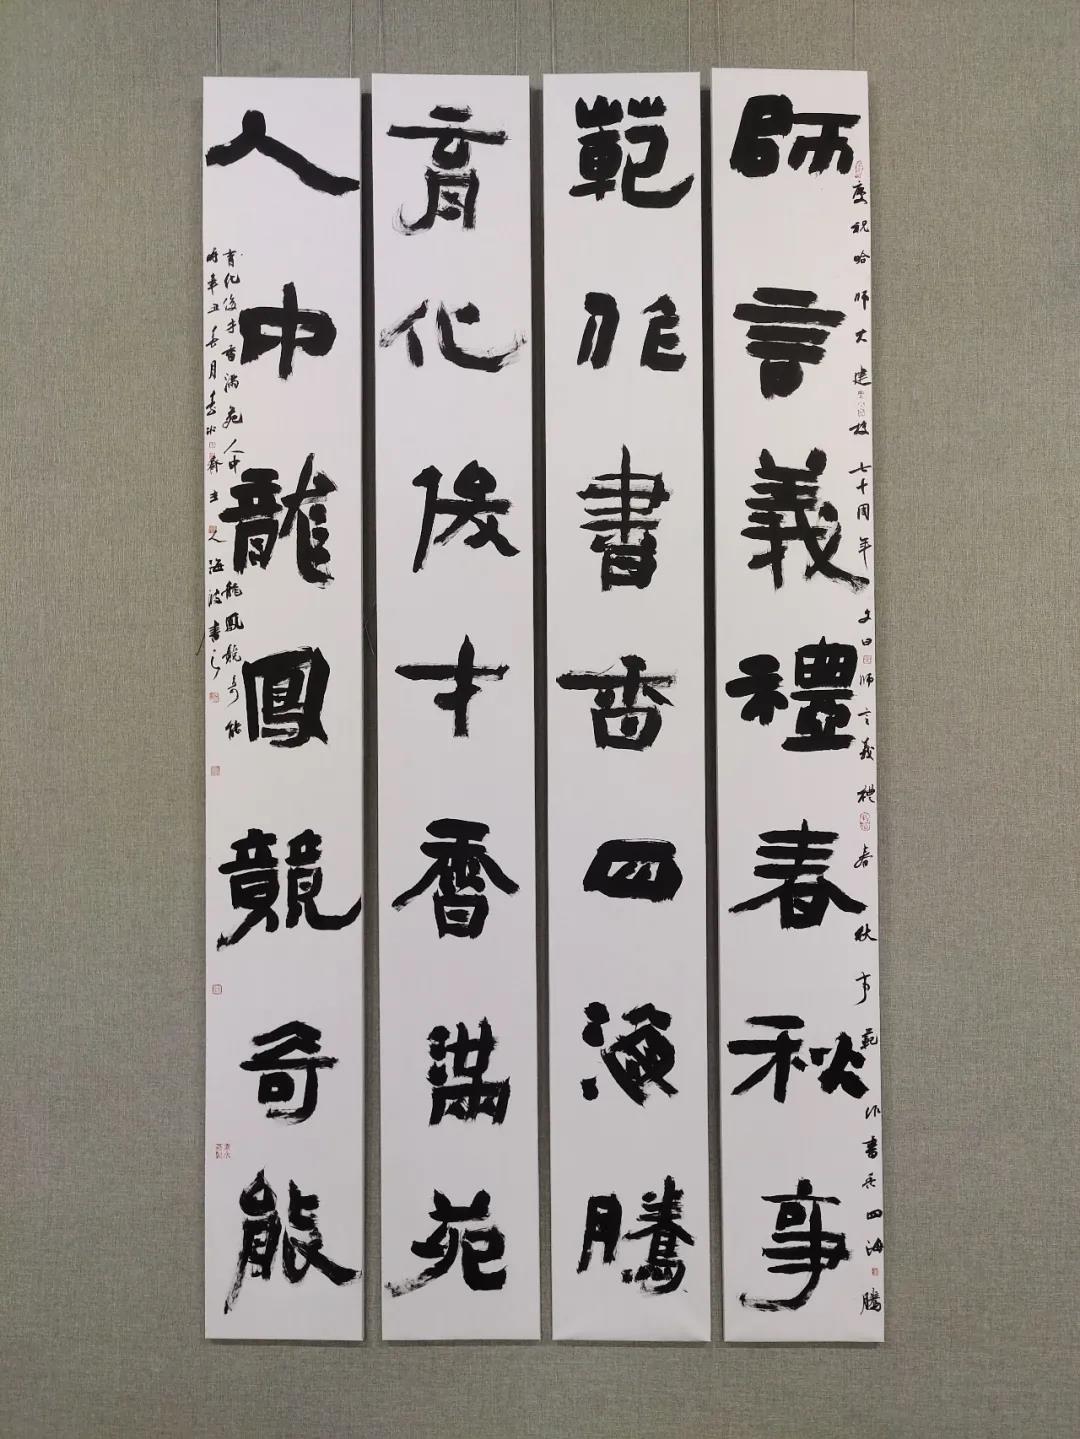 師言義禮春秋事
範作書香四海騰
育化俊才香滿苑
人中龍鳳競奇能
慶祝哈師大建校七十周年文曰師言義禮春秋事範作書香四海騰
育化俊才香滿苑人中龍鳳競奇能
時辛丑春月冰齋主人海波書之